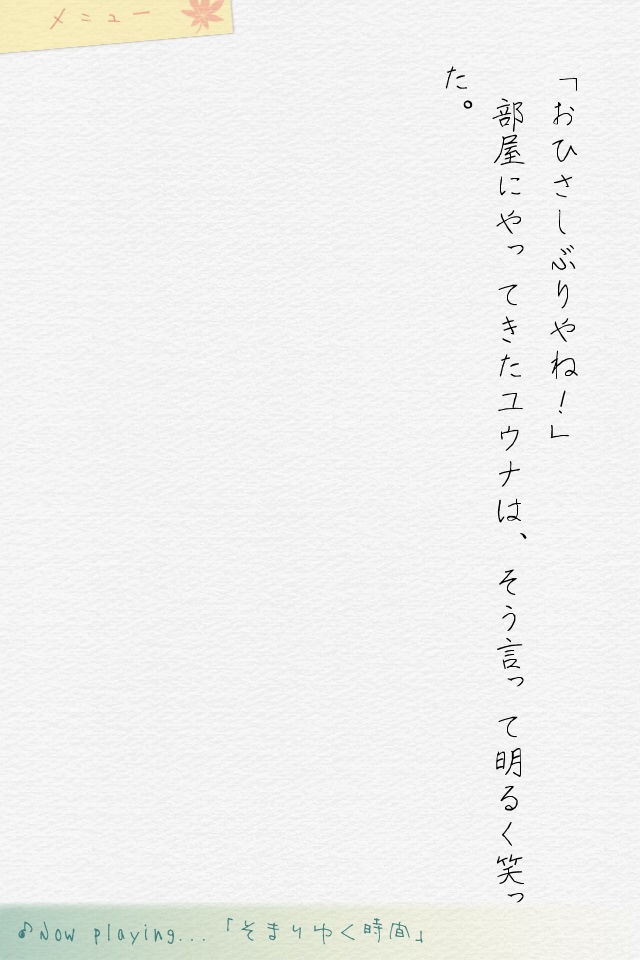 メニュー
「おひさしぶりやね！」
部屋にやってきたユウナは、そう言って明るく笑っ
た。
♪Now playing...「そまりゆく時間」